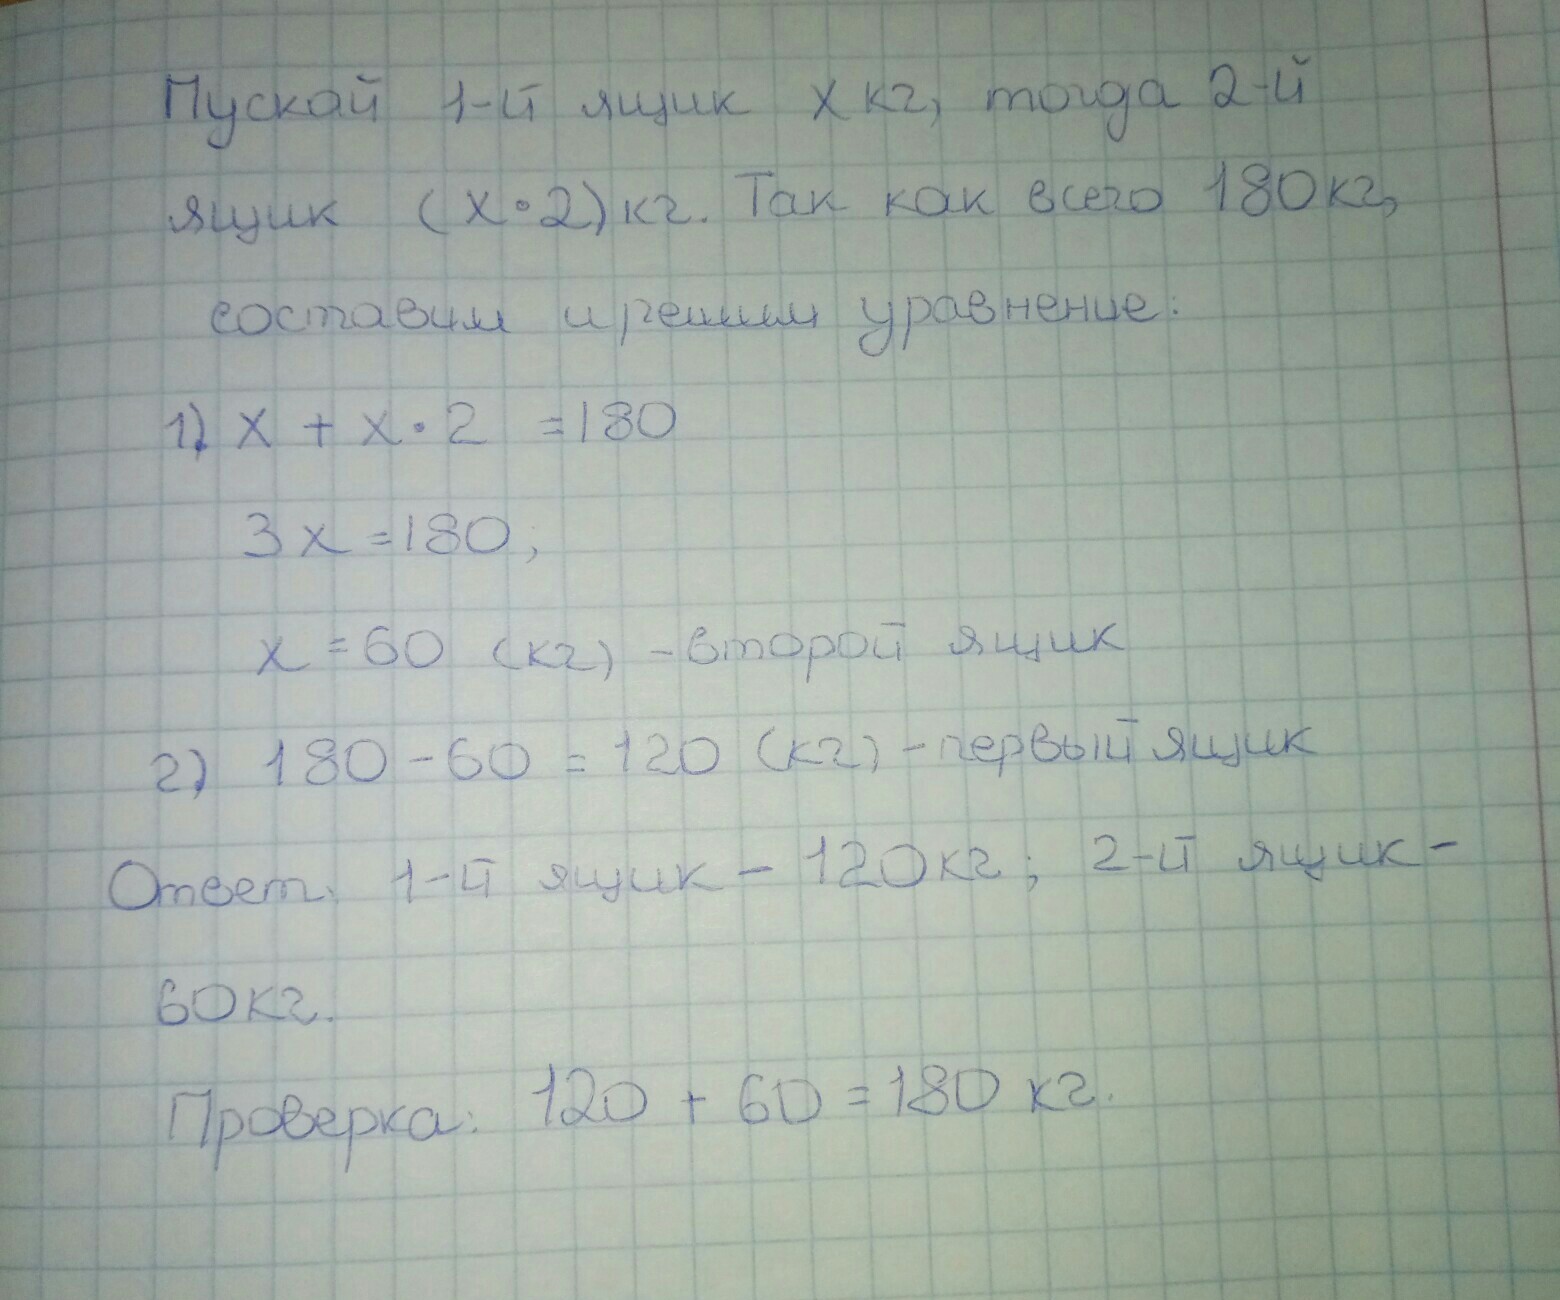 Пускай 1-й ящик x кг, тогда 2-й
ящик (x•2)кг. Так как всего 180кг,
составим и решим уравнение:
1) x + x•2 =180
3x=180;
x=60 (кг) - второй ящик
2) 180-60=120 (кг) - первый ящик
Ответ: 1-й ящик - 120кг; 2-й ящик -
60кг.
Проверка: 120 + 60 = 180 кг.